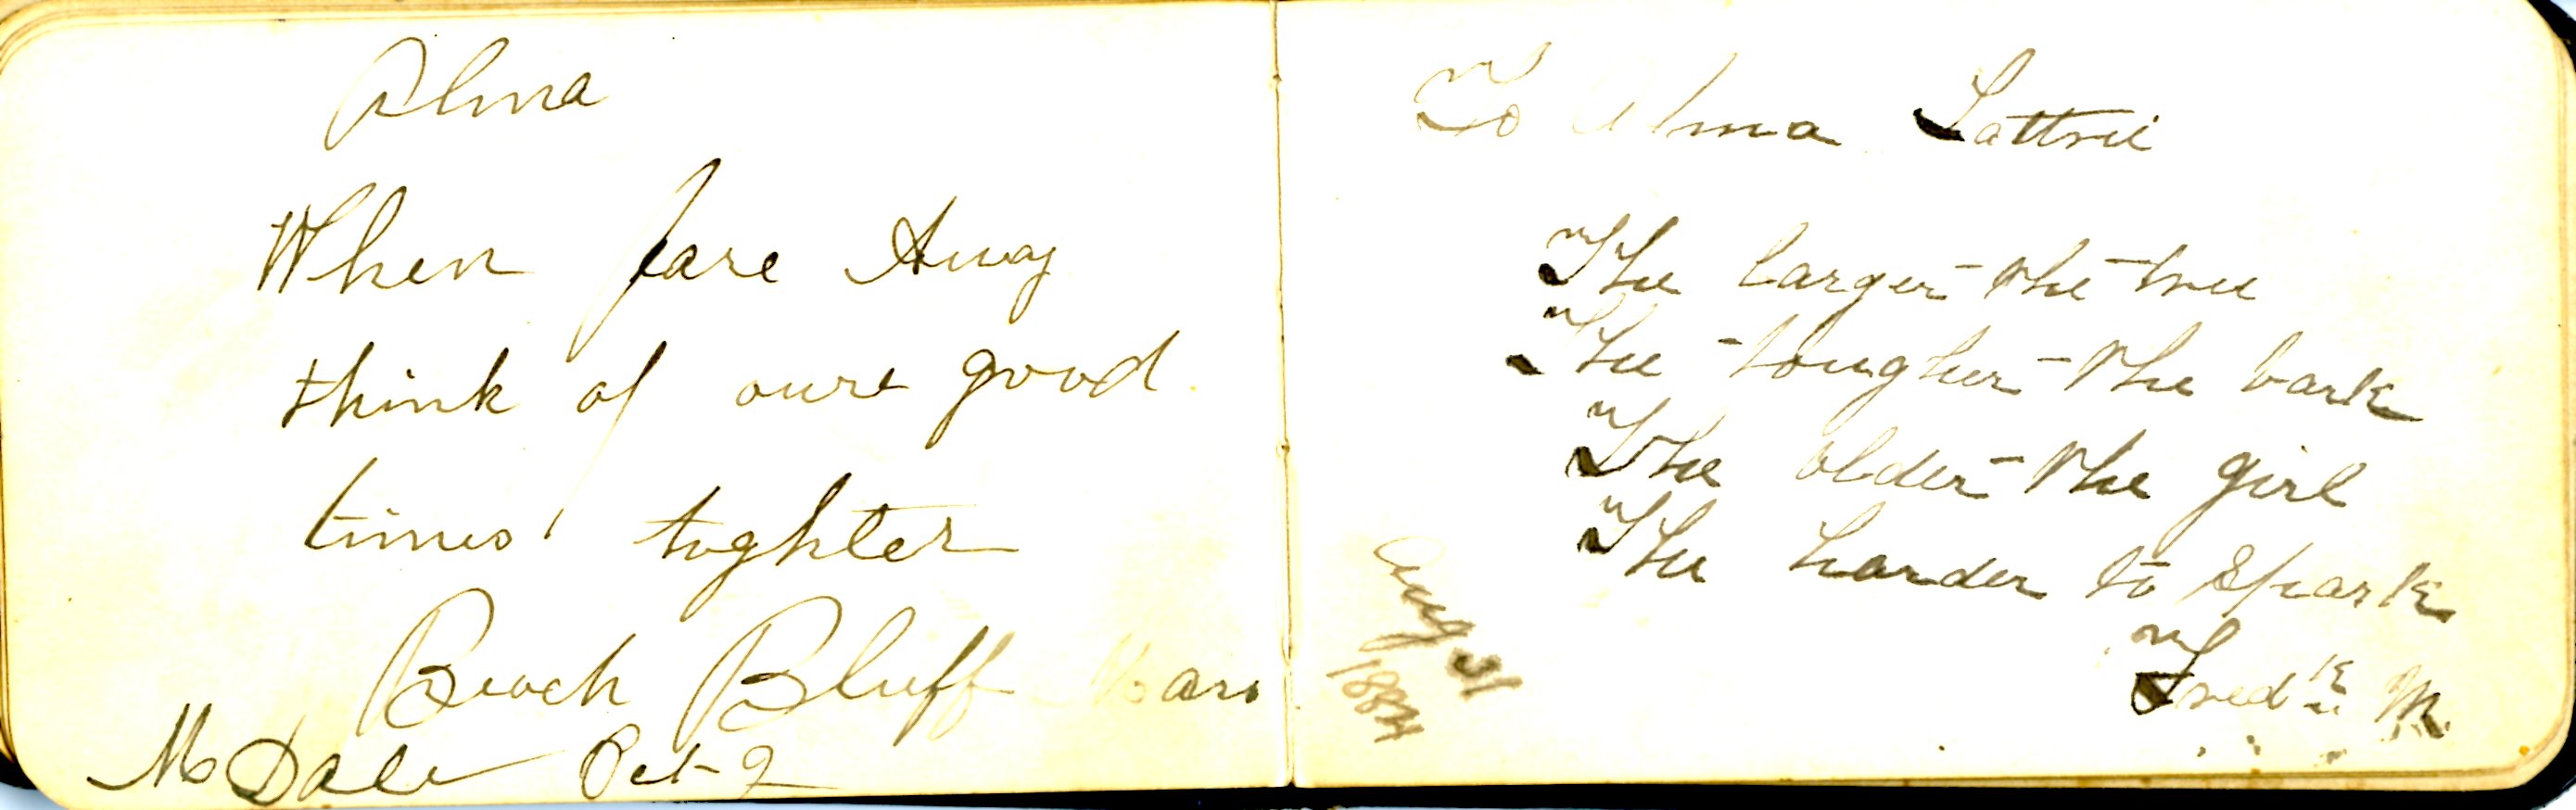 Alma
When fare Away
think of oure good
times toghter
Beach Bluff Mass
M Dale Oct 2
To Alma
The larger the tree
The tougher the bark
The older the girl
The harder to spark
Fredk M.
Aug 31
1884